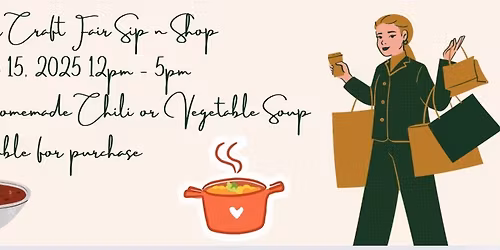 Craft Fair Sip n Shop
15, 2025 12pm - 5pm
omemade Chili or Vegetable Soup
ble for purchase